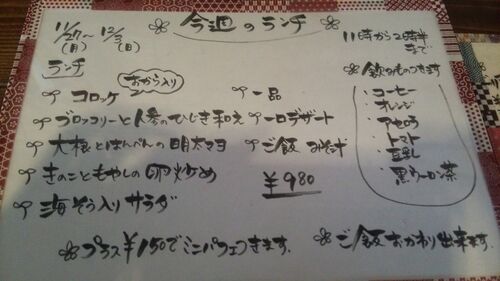 今週のランチ
11/27〜12/3
(月) (日)
11時から2時半
まで
ランチ
おから入り
コロッケ
ブロッコリーと人参のひじき和え
大根とはんぺんの明太マヨ
きのこともやしの卵炒め
海そう入りサラダ
一品
一口デザート
ご飯 みそ汁
¥980
飲みものつきます
・コーヒー
・オレンジ
・アセロラ
・トマト
・豆乳
・黒ウーロン茶
プラス¥150でミニパフェつきます。
ご飯おかわり出来ます